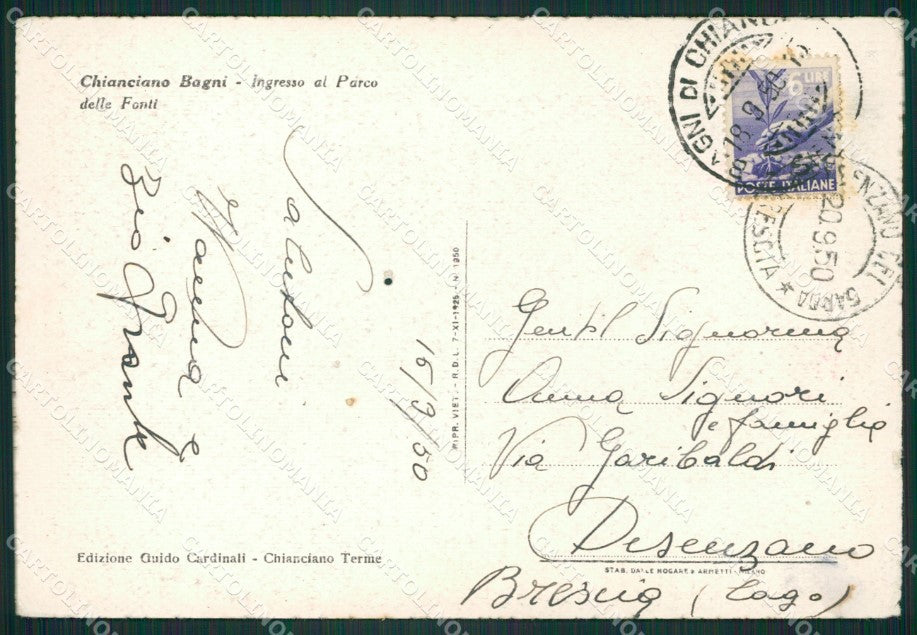 Chianciano Bagni - Ingresso al Parco
delle Fonti
16/9/50
Salutoni
Zio Frank
RIPR. VIET. - R. D. L. 7-XI-1925 - N. 1950
BAGNI DI CHIANCI
18 9 50
6 LIRE
POSTE ITALIANE
DESENZANO DEL GARDA
BRESCIA
20.9.50
Gentil Signorina
Anna Signori
e famiglia
Via Garibaldi
Desenzano
Brescia (Lago)
Edizione Guido Cardinali - Chianciano Terme
STAB. DALLE NOGARE & ARMETTI - MILANO
CARTOLINOMANIA